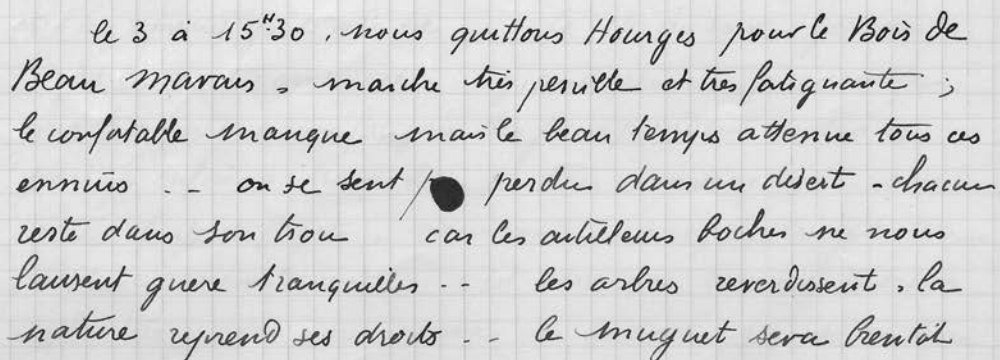 le 3 à 15H30. nous quittons Hourges pour le Bois de
Beau Marais. marche très penible et très fatiguante ;
le confortable manque mais le beau temps attenue tous ces
ennuis .. on se sent perdu dans un désert - chacun
reste dans son trou car les artilleurs boches ne nous
laissent guere tranquilles .. les arbres reverdissent. la
nature reprend ses droits .. le muguet sera bientôt